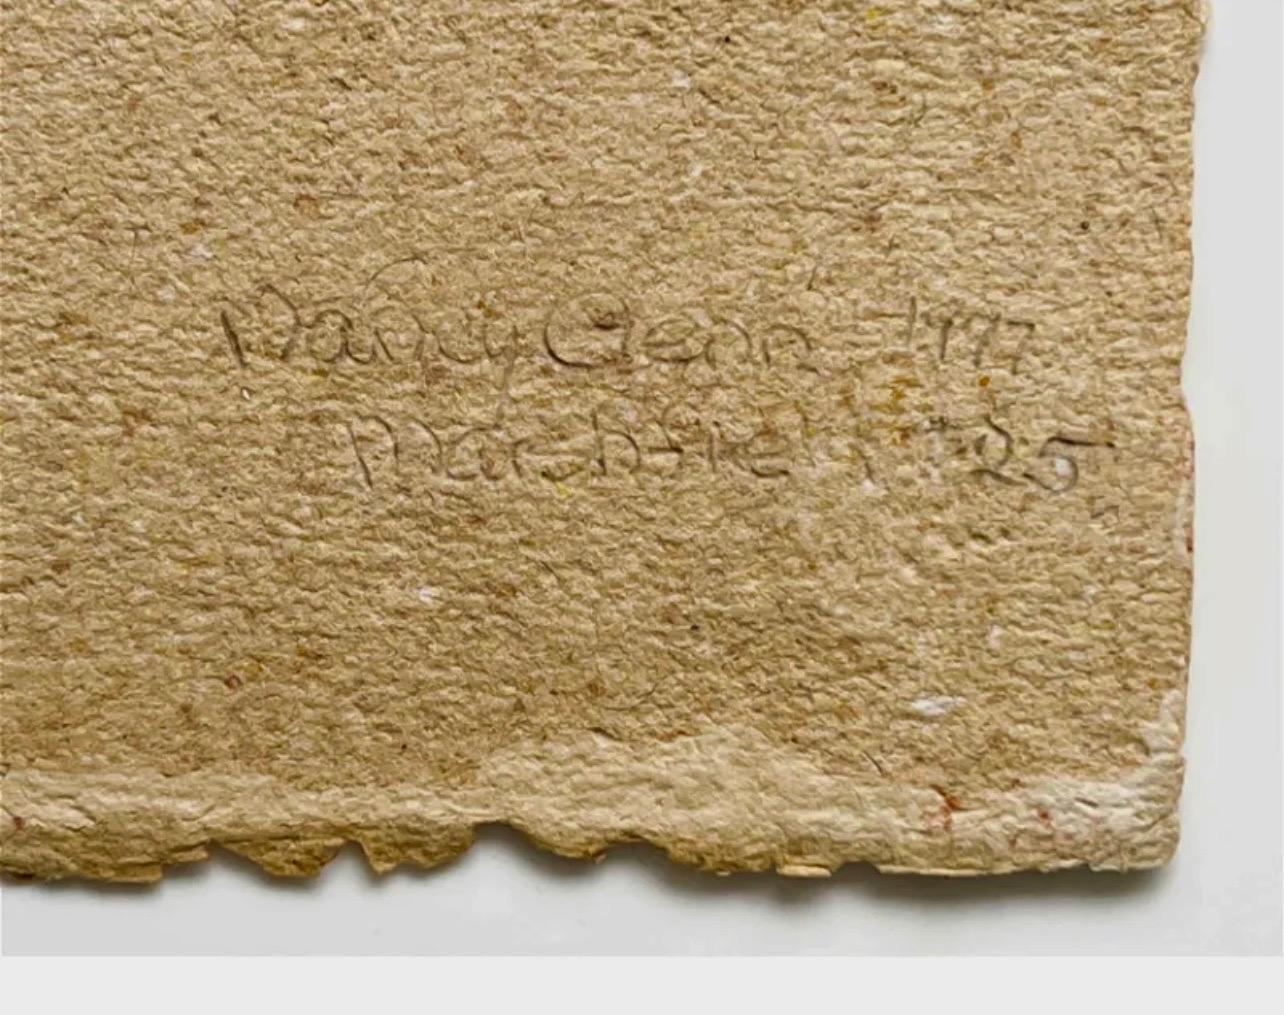 Nancy Genn 1997
Marshfield 25